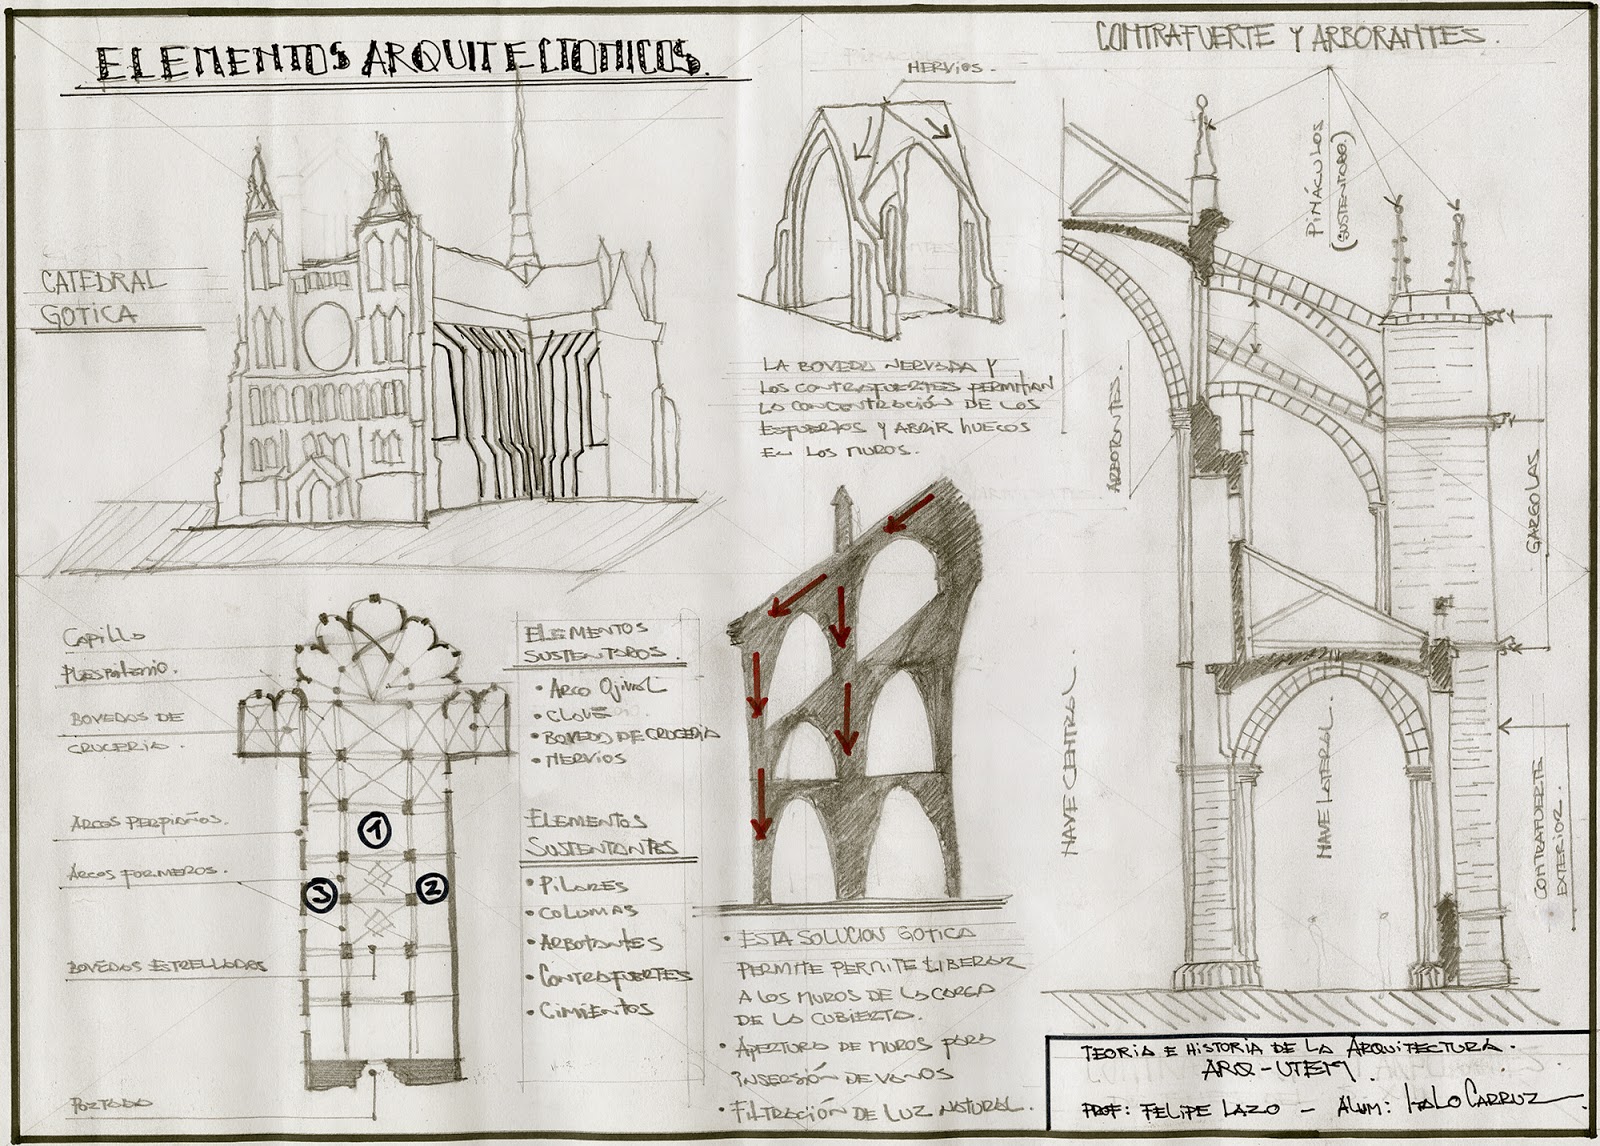 ELEMENTOS ARQUITECTONICOS.
CONTRAFUERTE Y ARBORANTES.
CATEDRAL
GOTICA
NERVIOS.
PINÁCULOS
(SUSTENTODO.)
LA BOVEDA NERVADA Y
LOS CONTRAFUERTES PERMITIAN
LA CONCENTRACIÓN DE LOS
ESFUERZOS Y ABRIR HUECOS
EN LOS MUROS.
ARBOTONTES.
GARGOLAS
NAVE CENTRAL
NAVE LATERAL.
CONTRAFUERTE
EXTERIOR.
Capilla
BOVEDOS DE
CRUCERIA.
ARCOS PERPIAÑOS.
ARCOS FORMEROS.
BOVEDOS ESTRELLADOS
PORTADA
1
2
3
ELEMENTOS
SUSTENTOROS.
• ARCO OJIVAL
• CLAVE
• BOVEDO DE CRUCERIA
• NERVIOS
ELEMENTOS
SUSTENTANTES
• PILARES
• COLUMAS
• ARBOTANTES
• CONTRAFUERTES
• CIMIENTOS
• ESTA SOLUCION GOTICA
PERMITE PERMITE LIBERAR
A LOS MUROS DE LA CARGA
DE LA CUBIERTA.
• APERTURA DE MUROS PARA
INSERSIÓN DE VANOS
• FILTRACIÓN DE LUZ NATURAL.
TEORIA E HISTORIA DE LA ARQUITECTURA.
ARQ-UTEM.
PROF: FELIPE LAZO - ALUM: ITALO CARRUZ